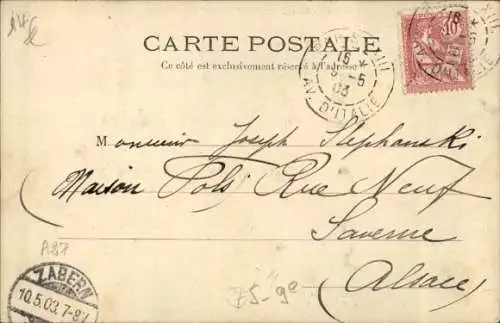 CARTE POSTALE
Ce côté est exclusivement réservé à l'adresse
AV. D'ITALIE
10
Monsieur Joseph Stephanski
(Maison Pols) Rue Neuf
Saverne
(Alsace)
A87
ZABERN
10.5.03.7-8V